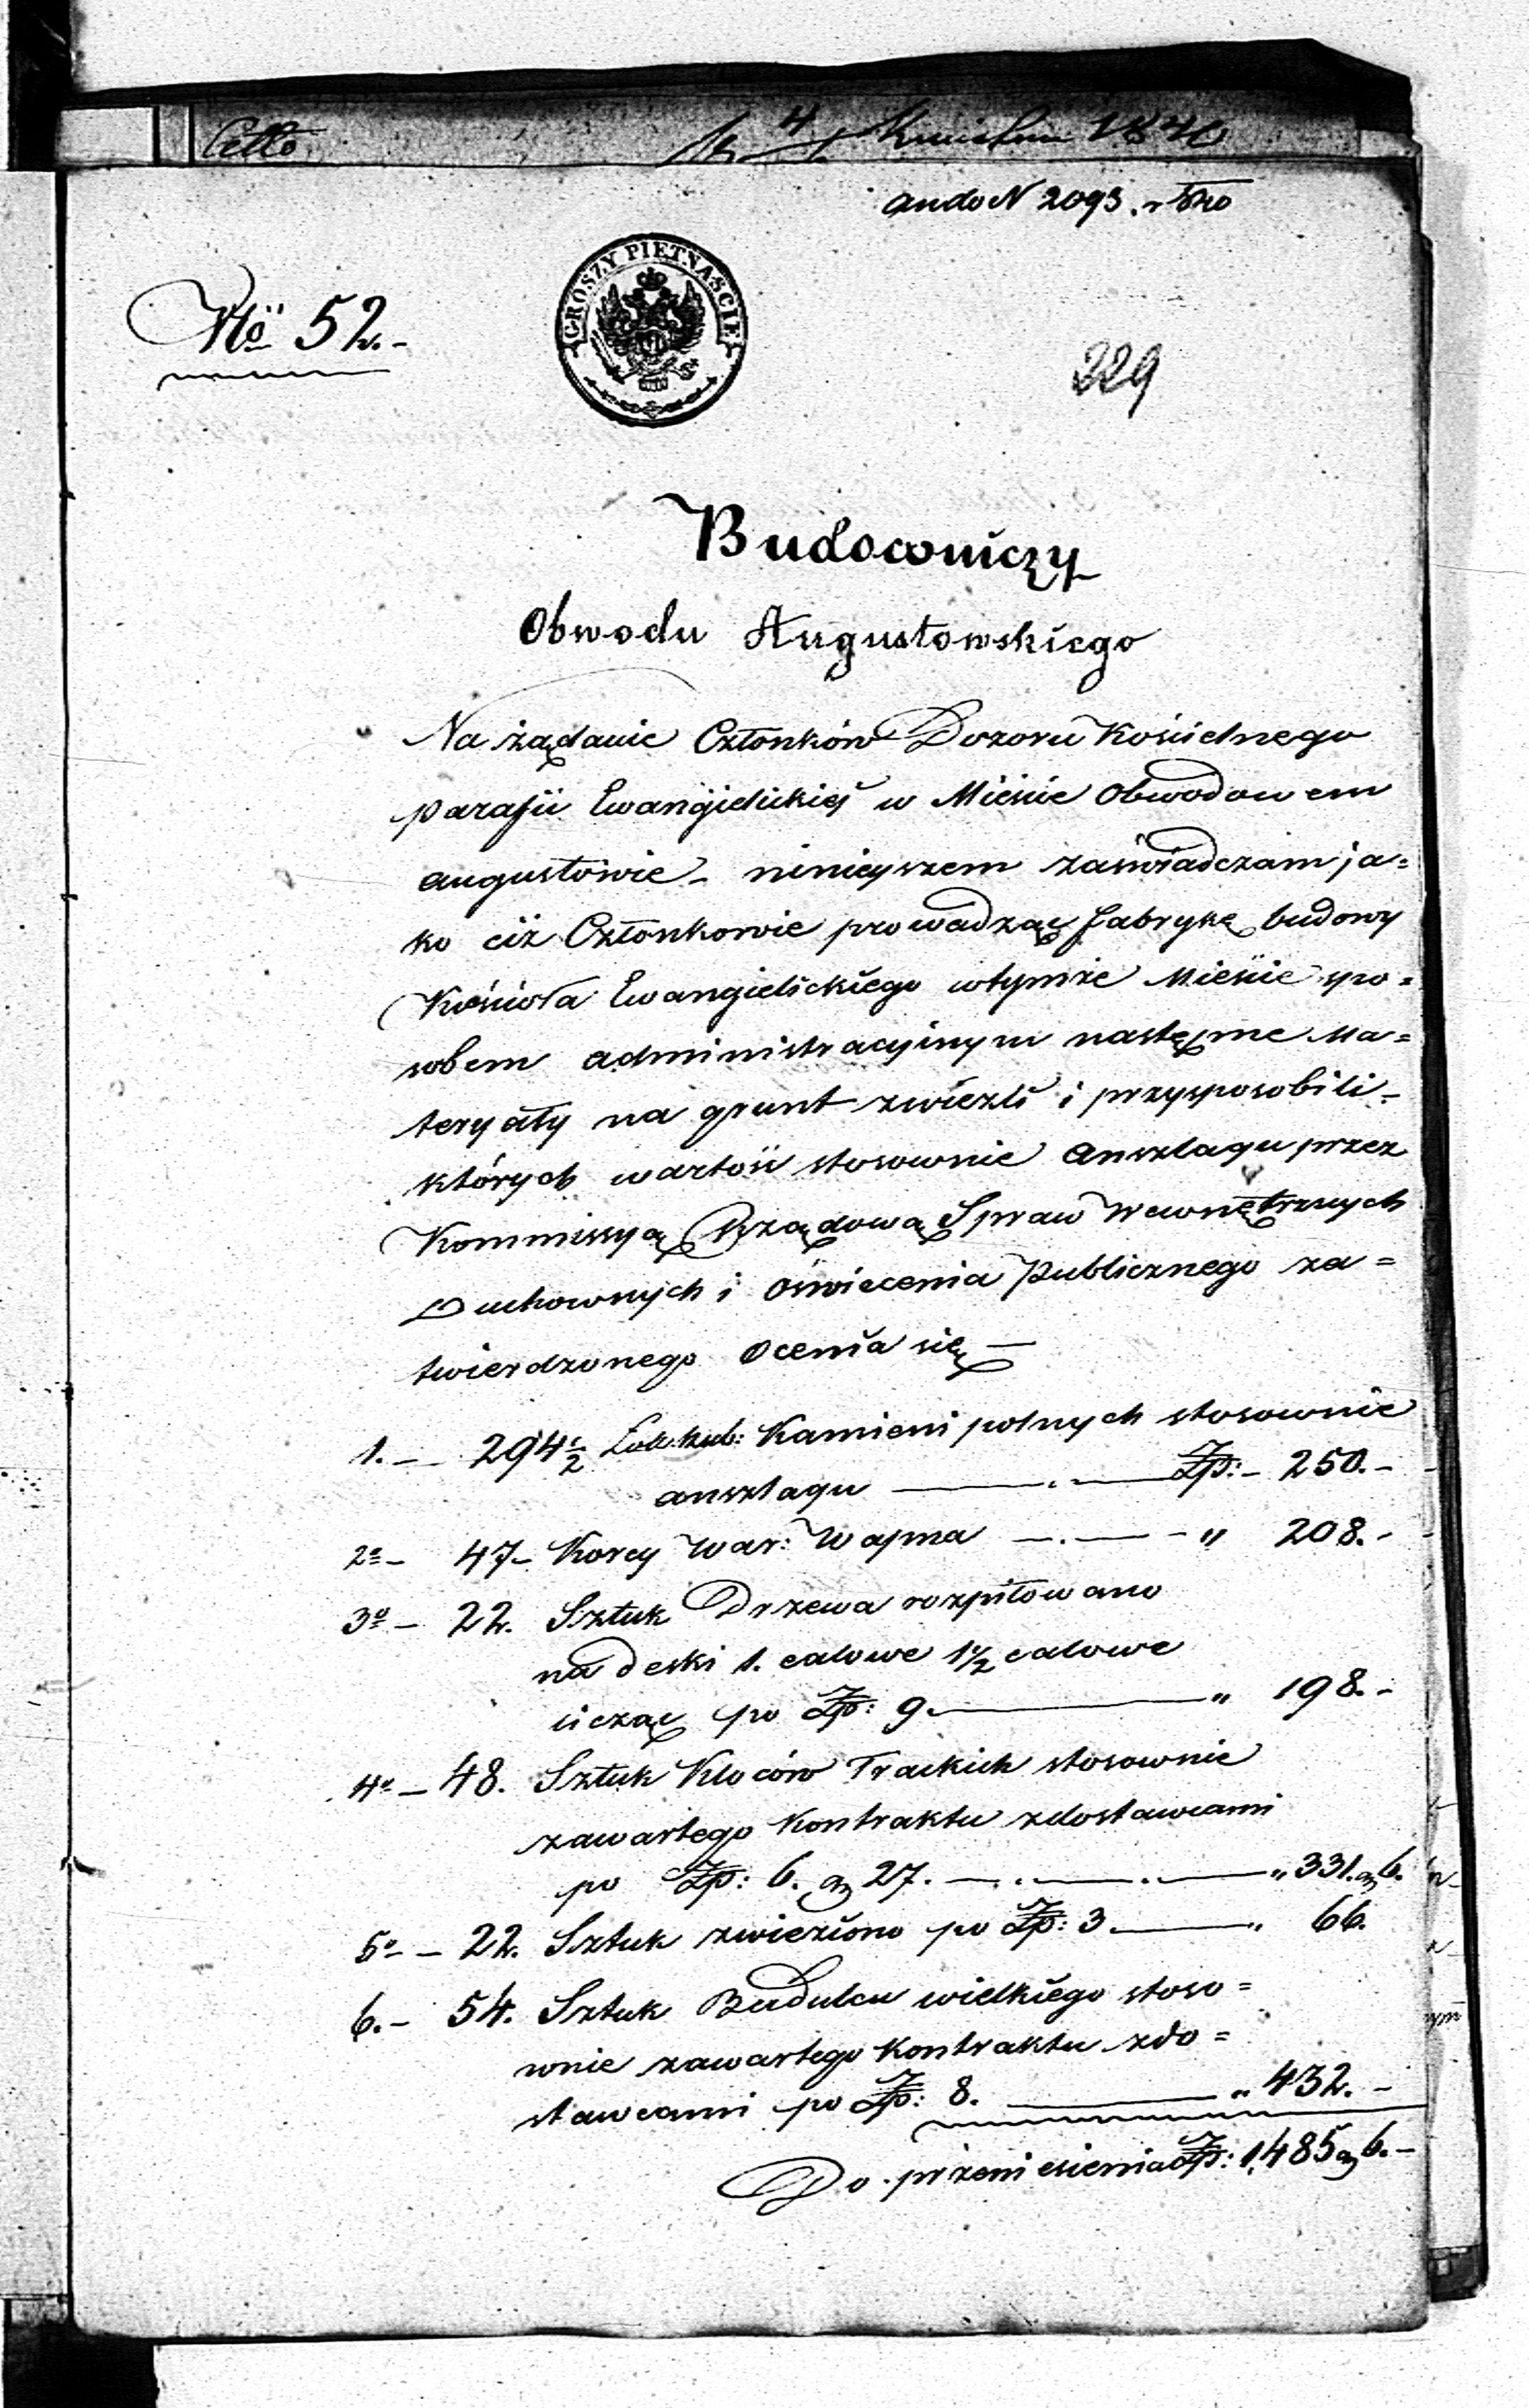 4 Kwietnia 1840
ando N 2093.
GROSZY PIETNAŚCIE
No 52.-
229
Budowniczy
Obwodu Augustowskiego
Na żądanie Członków Dozoru Kościelnego
parafii Ewangielickiej w Mieście Obwodowem
Augustowie - ninieyszem zaświadczam ja=
ko ciż Członkowie prowadząc fabrykę budowy
Kościoła Ewangielickiego wtymże Mieście spo=
sobem administracyinym następne Ma=
teryały na grunt zwieźli i przysposobili -
których wartość stosownie Anszlagu przez
Kommissyą Rządową Spraw Wewnętrznych
Duchownych i Oświecenia Publicznego za=
twierdzonego Ocenia się —
1. - 294 1/2 Łok: kub: Kamieni polnych stosownie
anszlagu — . — Zp: - 250. -
2o - 47 - Korcy War: Wapna — . — - " 208. -
3o - 22. Sztuk Drzewa rozpiłowano
na deski 1. calowe 1 1/2 calowe
licząc po Zp: 9. — " 198. -
4o - 48. Sztuk Kloców Trackich stosownie
zawartego Kontraktu zdostawcami
po Zp: 6. g 27. — . — . — " 331. g 6.
5o - 22. Sztuk zwieziono po Zp: 3 — " 66.
6. - 54. Sztuk Budulcu wielkiego stoso=
wnie zawartego Kontraktu zdo=
stawcami po Zp: 8. — " 432. -
Do przeniesienia Zp: 1,485 g 6. -